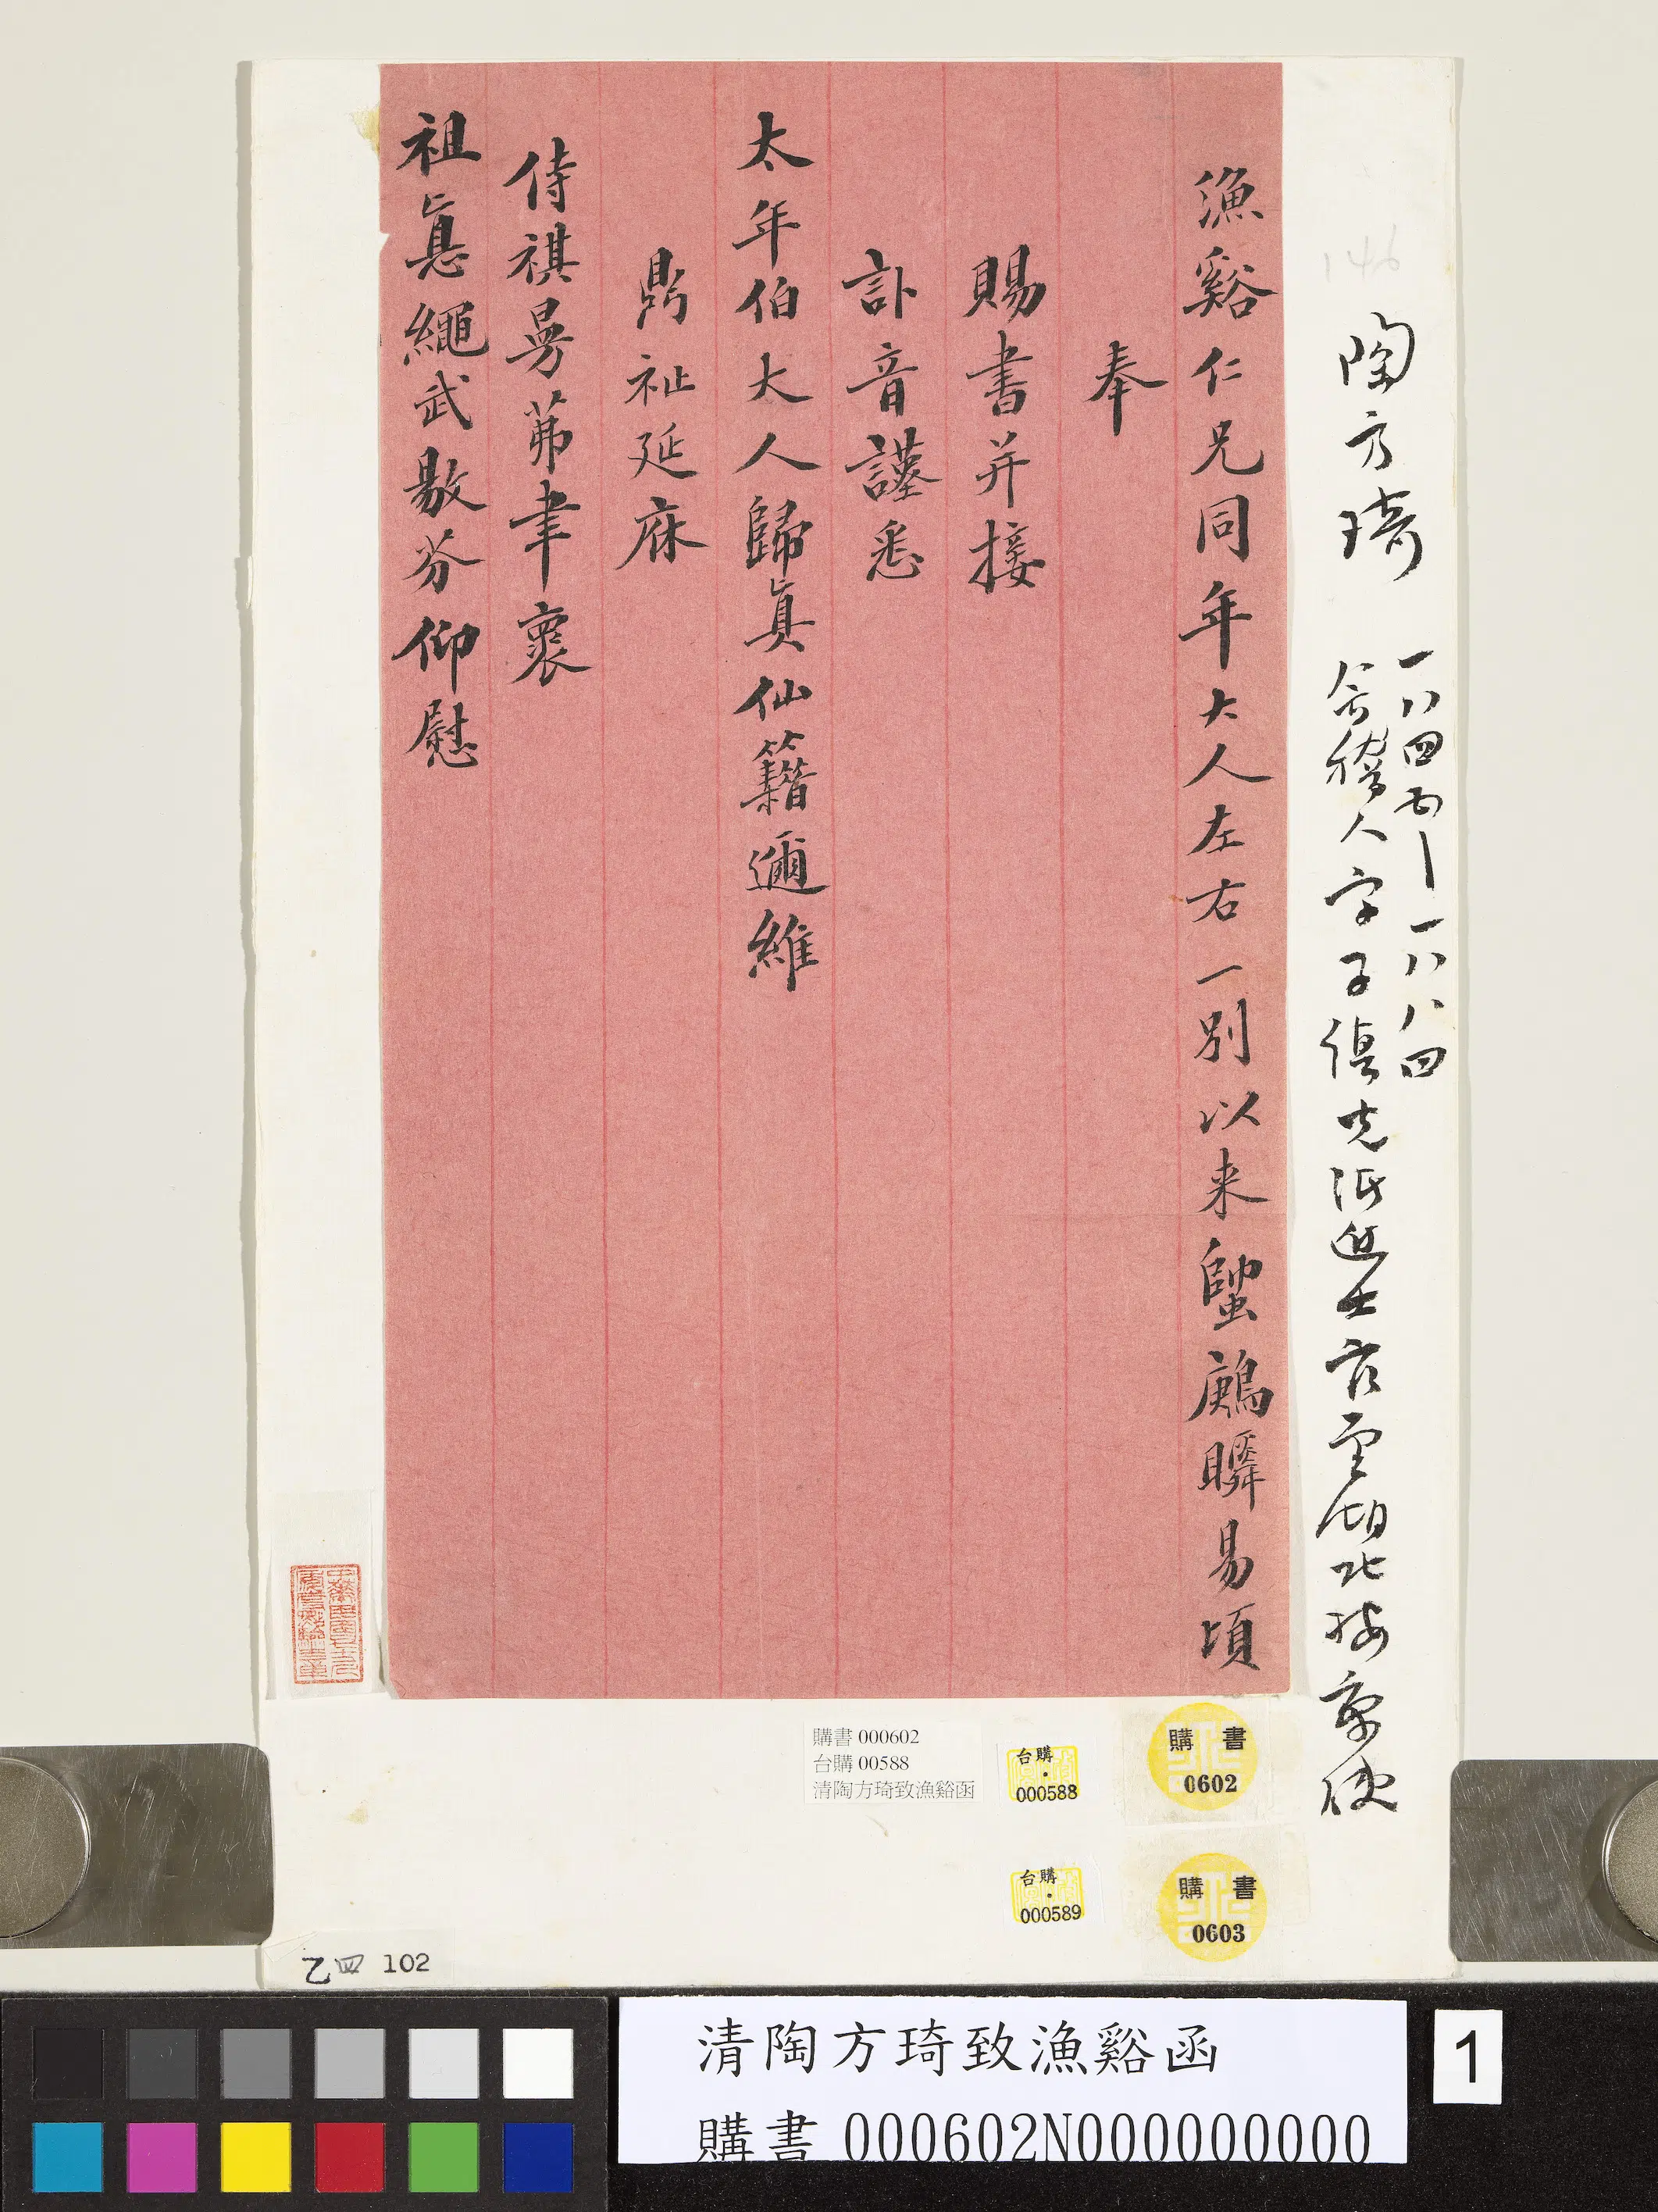 146
陶方琦
一八四五—一八八四
會稽人字子縝光緒進士官至湖北按察使
漁谿仁兄同年大人左右一別以来瞬易頃
奉
賜書并接
訃音謹悉
太年伯大人歸眞仙籍邇維
鼎祉延庥
侍祺曼茀聿褱
祖悳繩武敭芬仰慰
購書 000602
台購 00588
清陶方琦致漁谿函
台購・000588
購書 0602
台購・000589
購書 0603
乙四 102
清陶方琦致漁谿函
購書 000602N000000000
1